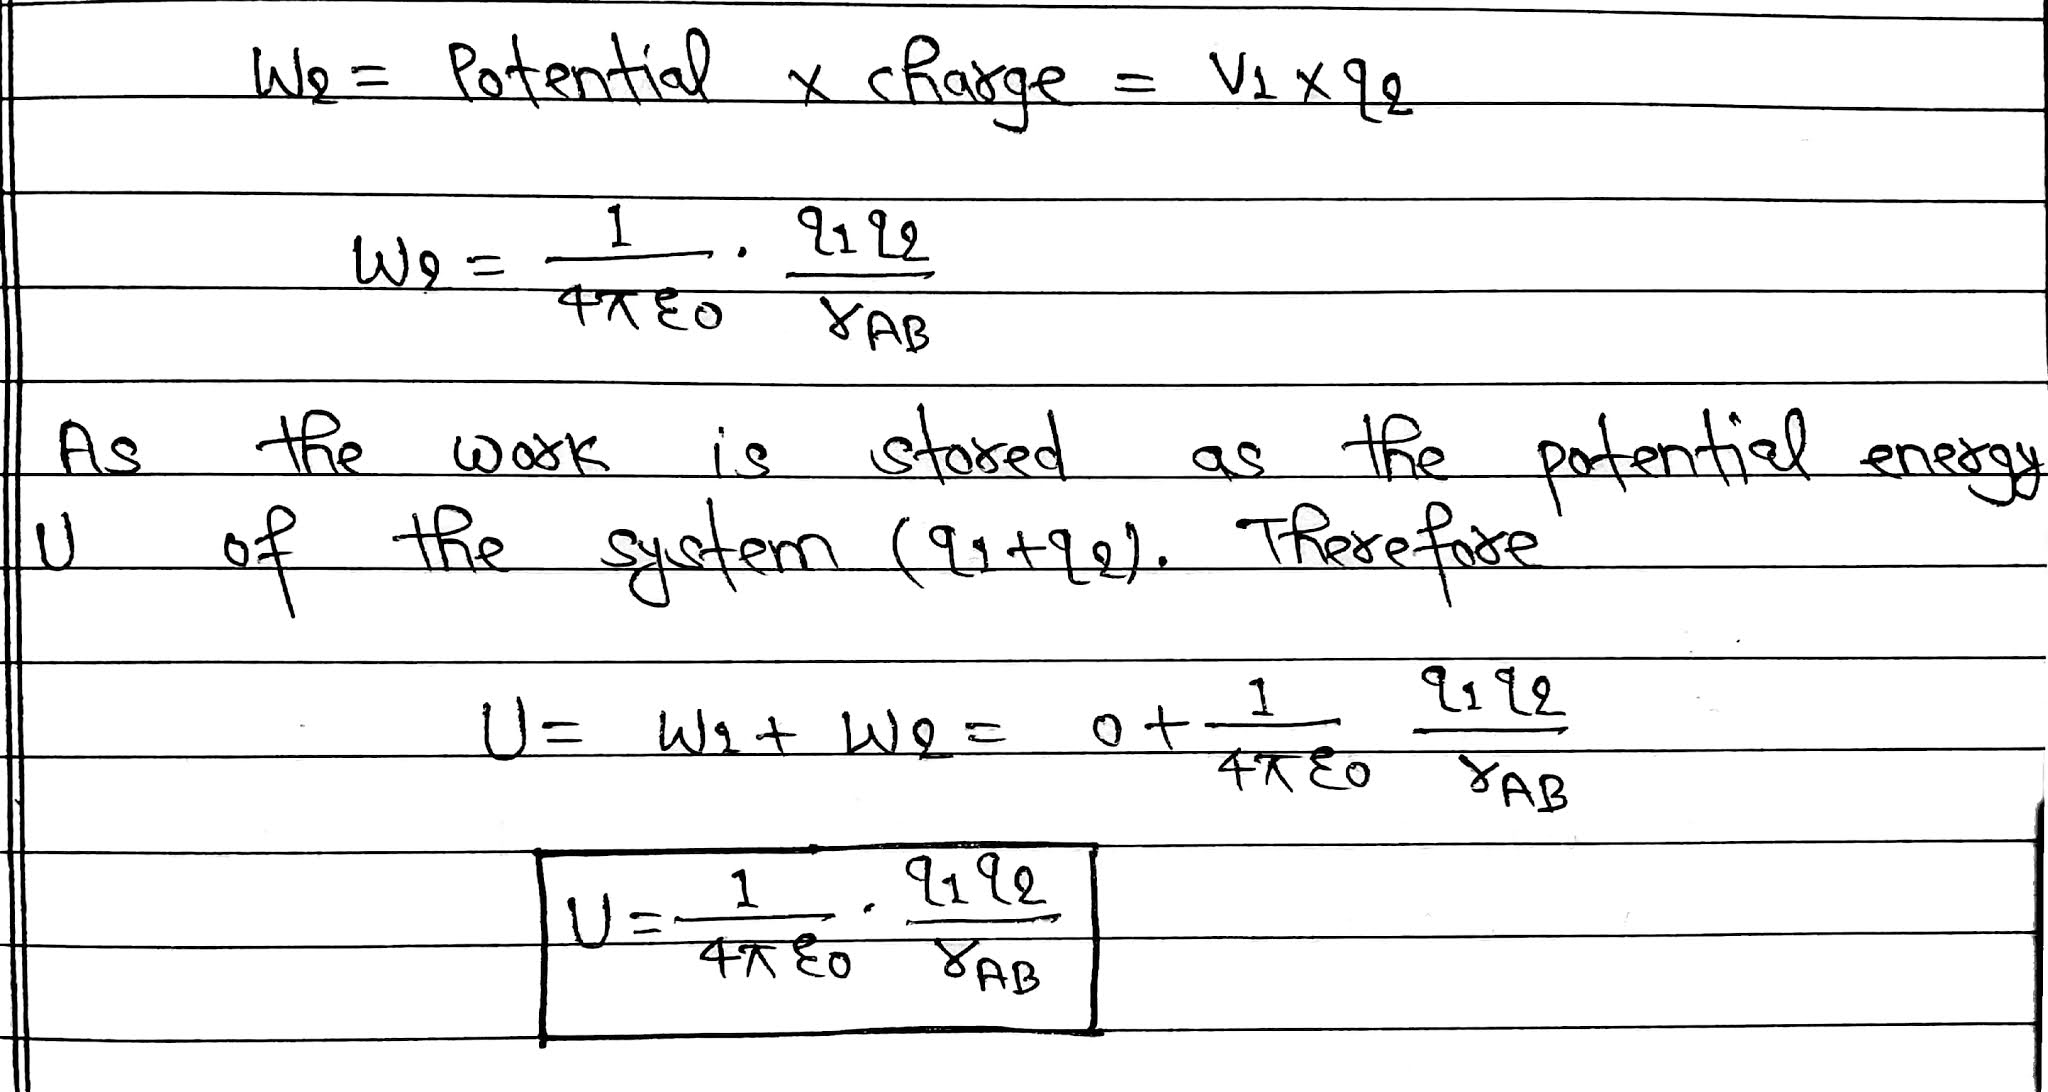 W2 = Potential × charge = V1 × q2
W2 = 1/4πε0 . q1q2/rAB
As the work is stored as the potential energy
U of the system (q1+q2). Therefore
U = W1 + W2 = 0 + 1/4πε0 q1q2/rAB
U = 1/4πε0 . q1q2/rAB